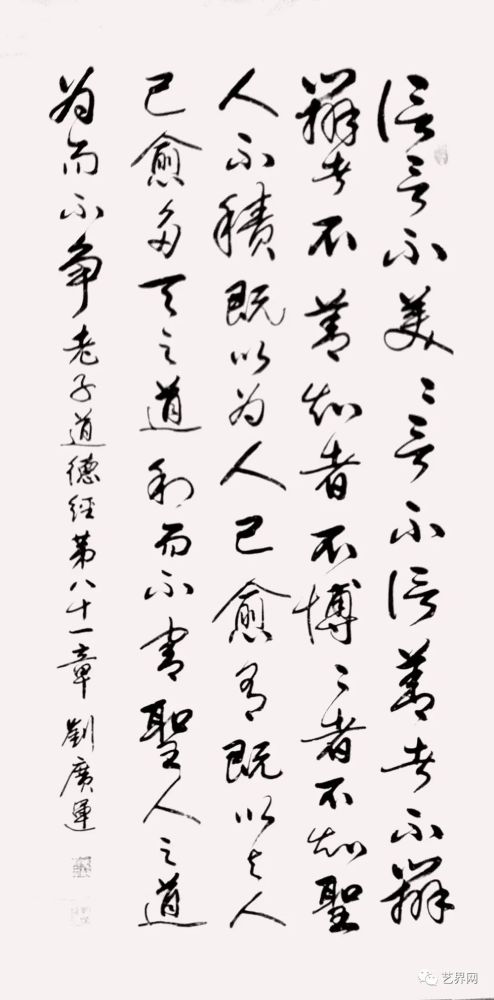 信言不美〻言不信善者不辯
辯者不善知者不博〻者不知聖
人不積既以为人己愈有既以与人
己愈多天之道利而不害聖人之道
为而不争老子道德經第八十一章劉廣運
艺界网